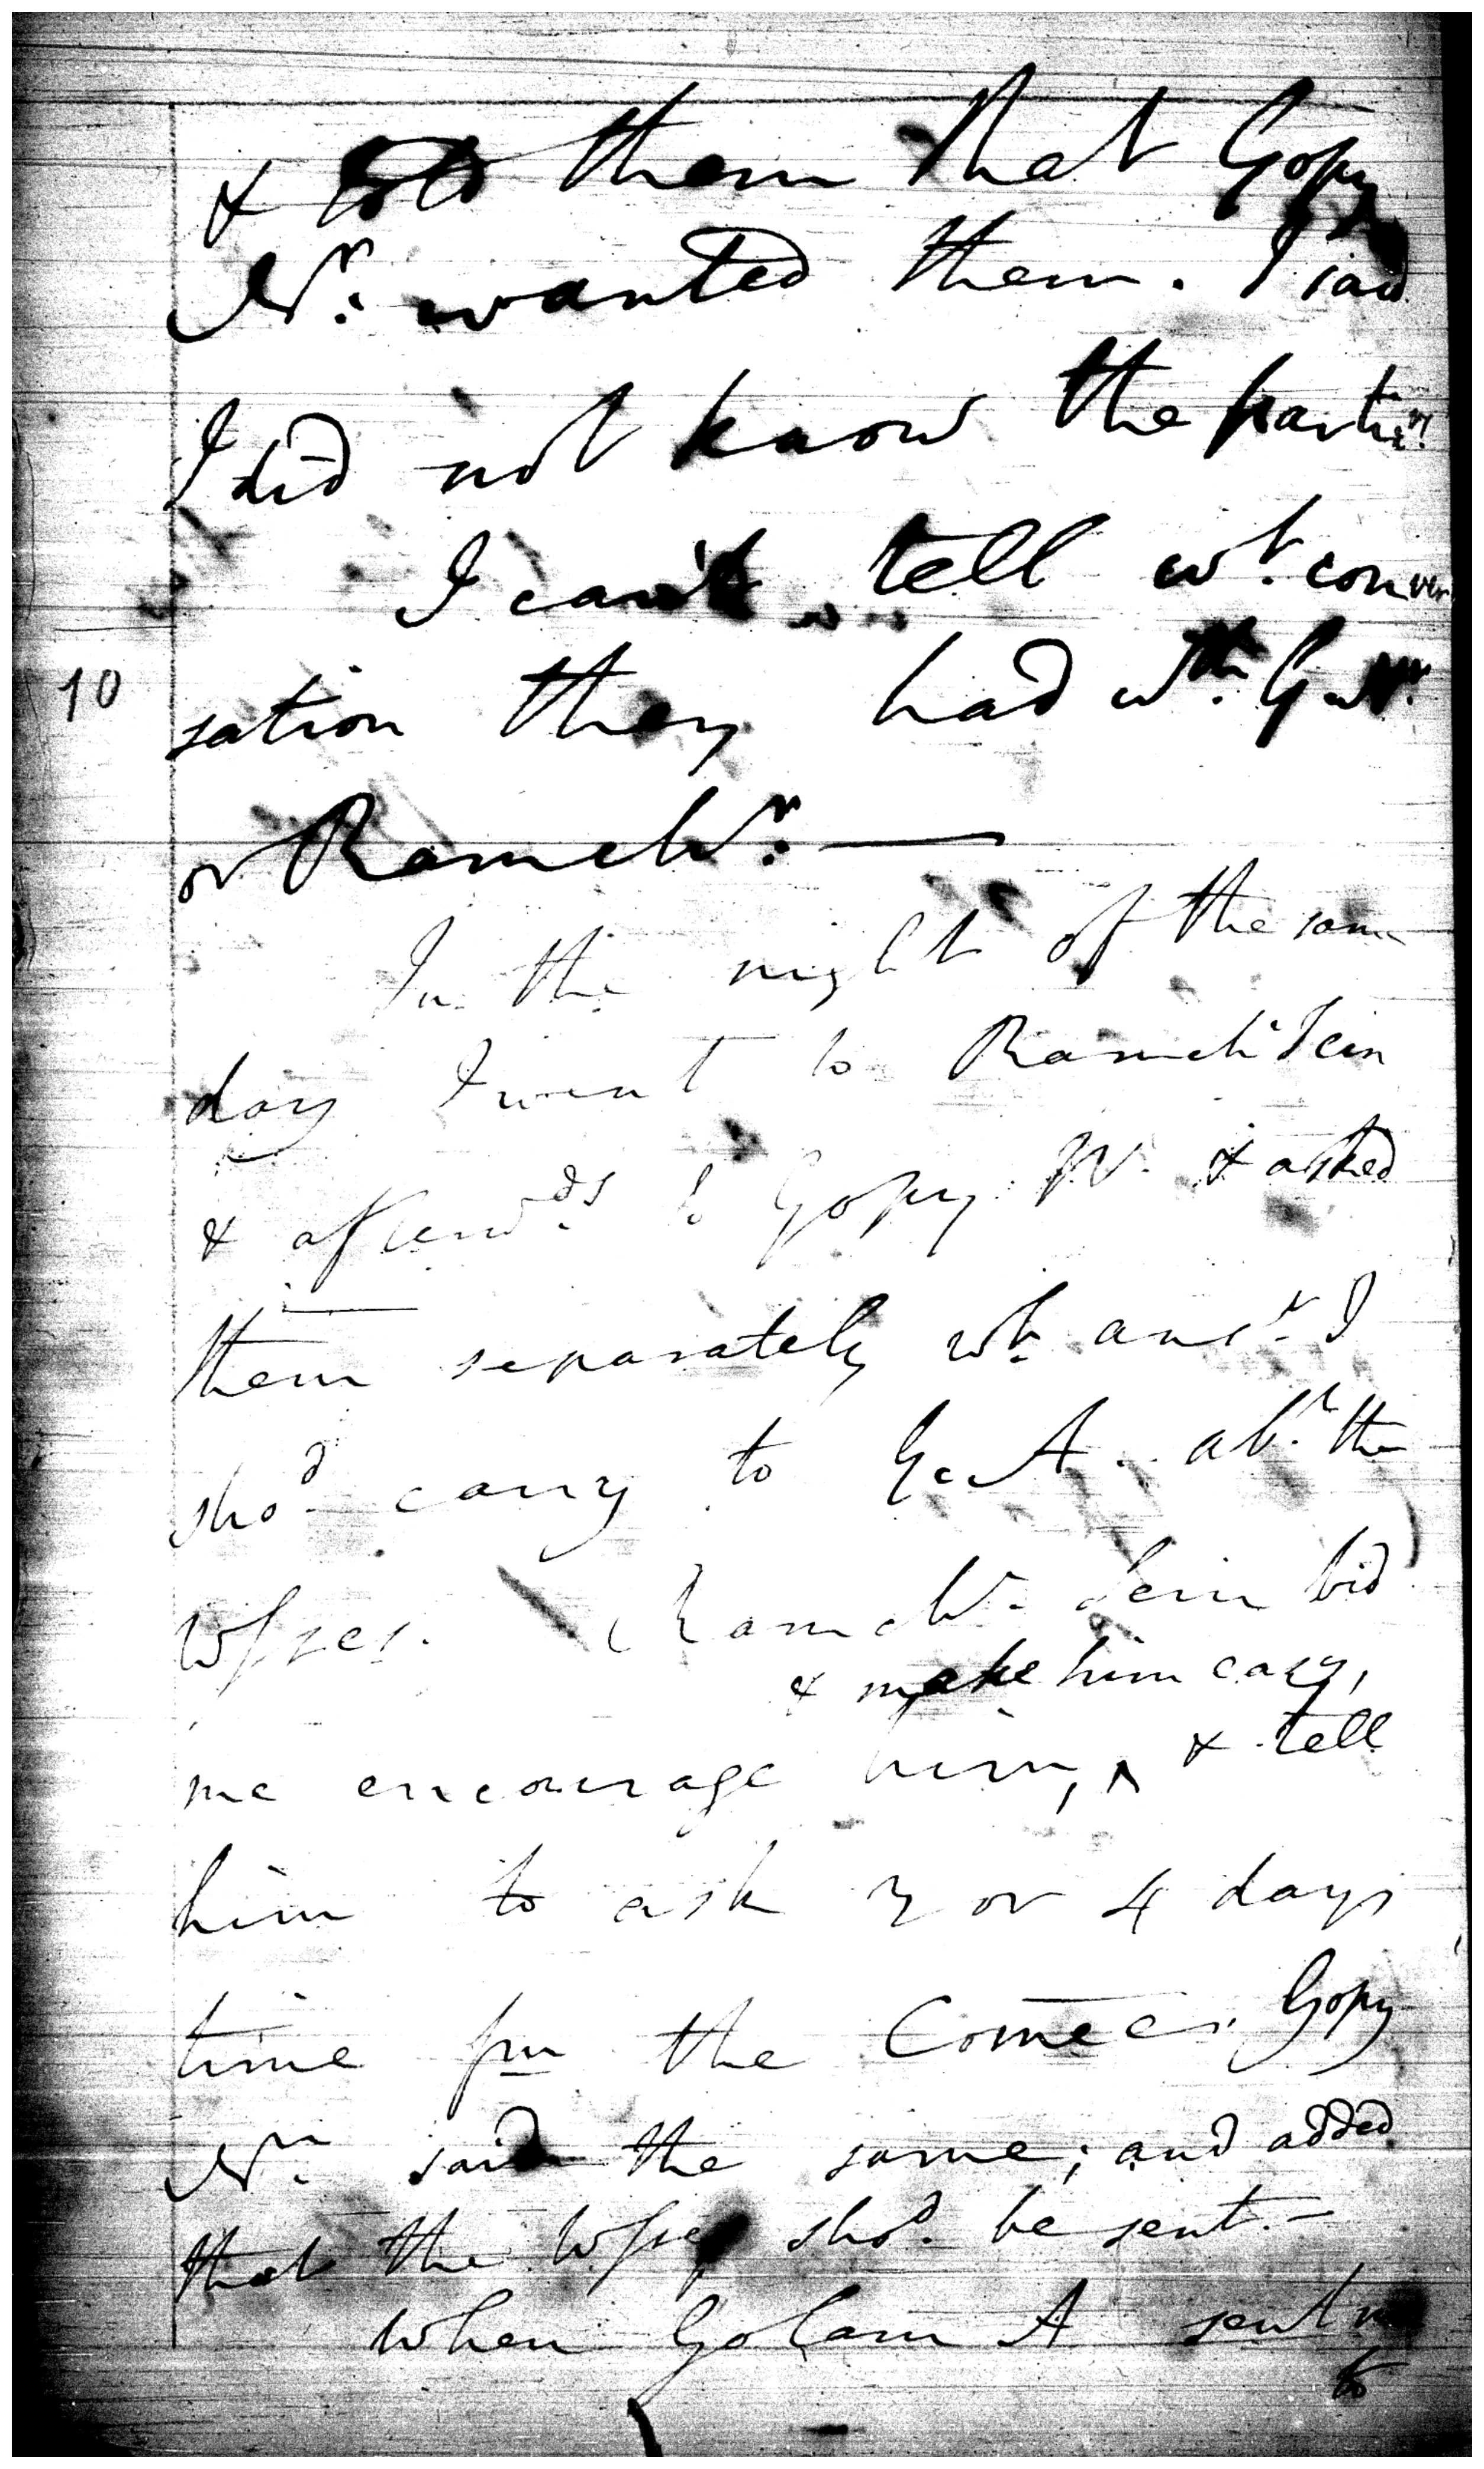 & told them that Gopy
Nr. wanted them. I said
I did not know the partirs.
I can't tell wt. conver
sation they had wth. G. Nr.
10
or Ramchr. —
In the night of the same
day I went to Ramchr Sein
& afterwds. to Gopy Nr. & asked
them separately wt. ansr. I
shod. carry to G. A. abt. the
Wsses. Ramchr. Sein bid
& make him easy,
me encourage him, ^ & tell
him to ask 3 or 4 days
time fm the Comee. Gopy
Nr. said the same; and added
that the Wsses shod. be sent. —
When Golam A sent me
to